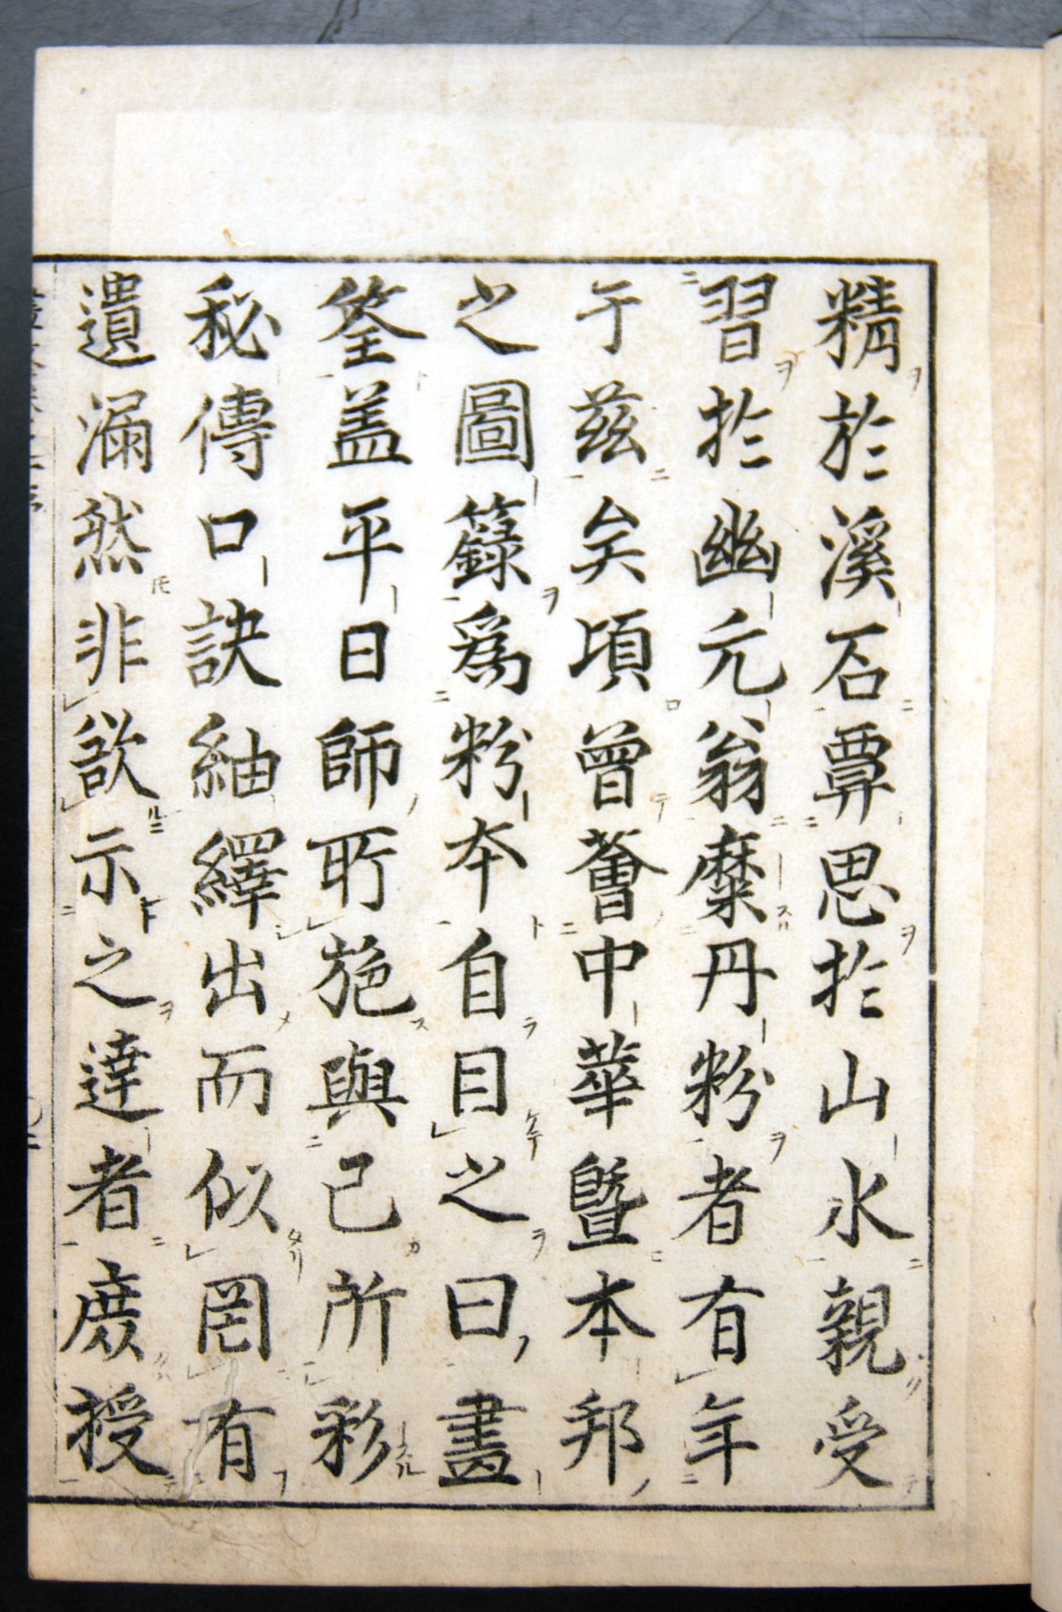 精於溪石覃思於山水親受
習於幽元翁糜丹粉者有年
于茲矣頃曾薈中華曁本邦
之圖籙爲粉本自目之曰畫
筌盖平日師所施與己所彩
秘傳口訣紬繹出而似罔有
遺漏然非欲示之達者庶授